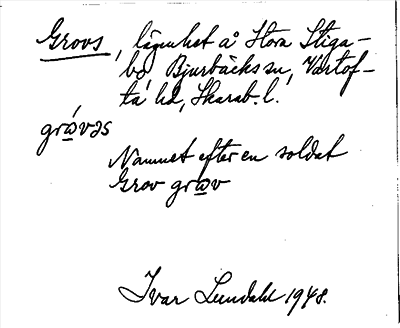 Grovs, lägenhet å Stora Stiga-
bo Bjurbäcks sn, Vartof-
ta hd, Skarab. l.
grώvəs
Namnet efter en soldat
Grov grωv
Ivar Lundahl 1948.